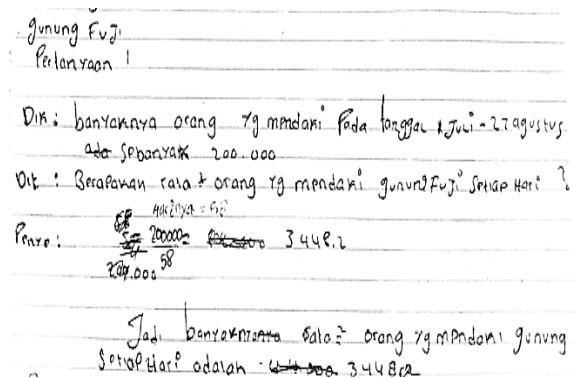 Gunung Fuji
Pertanyaan 1
Dik : banyaknya orang yg mendaki Pada tanggal 1 Juli - 27 agustus
ada Sebanyak 200.000
Dit : Berapakah rata² orang yg mendaki gunung Fuji Setiap Hari ?
Harinya = 58
Penye : 200000 = 3448.2
58
Jadi banyaknya rata² orang yg mendaki gunung
Setiap Hari adalah 3448,2